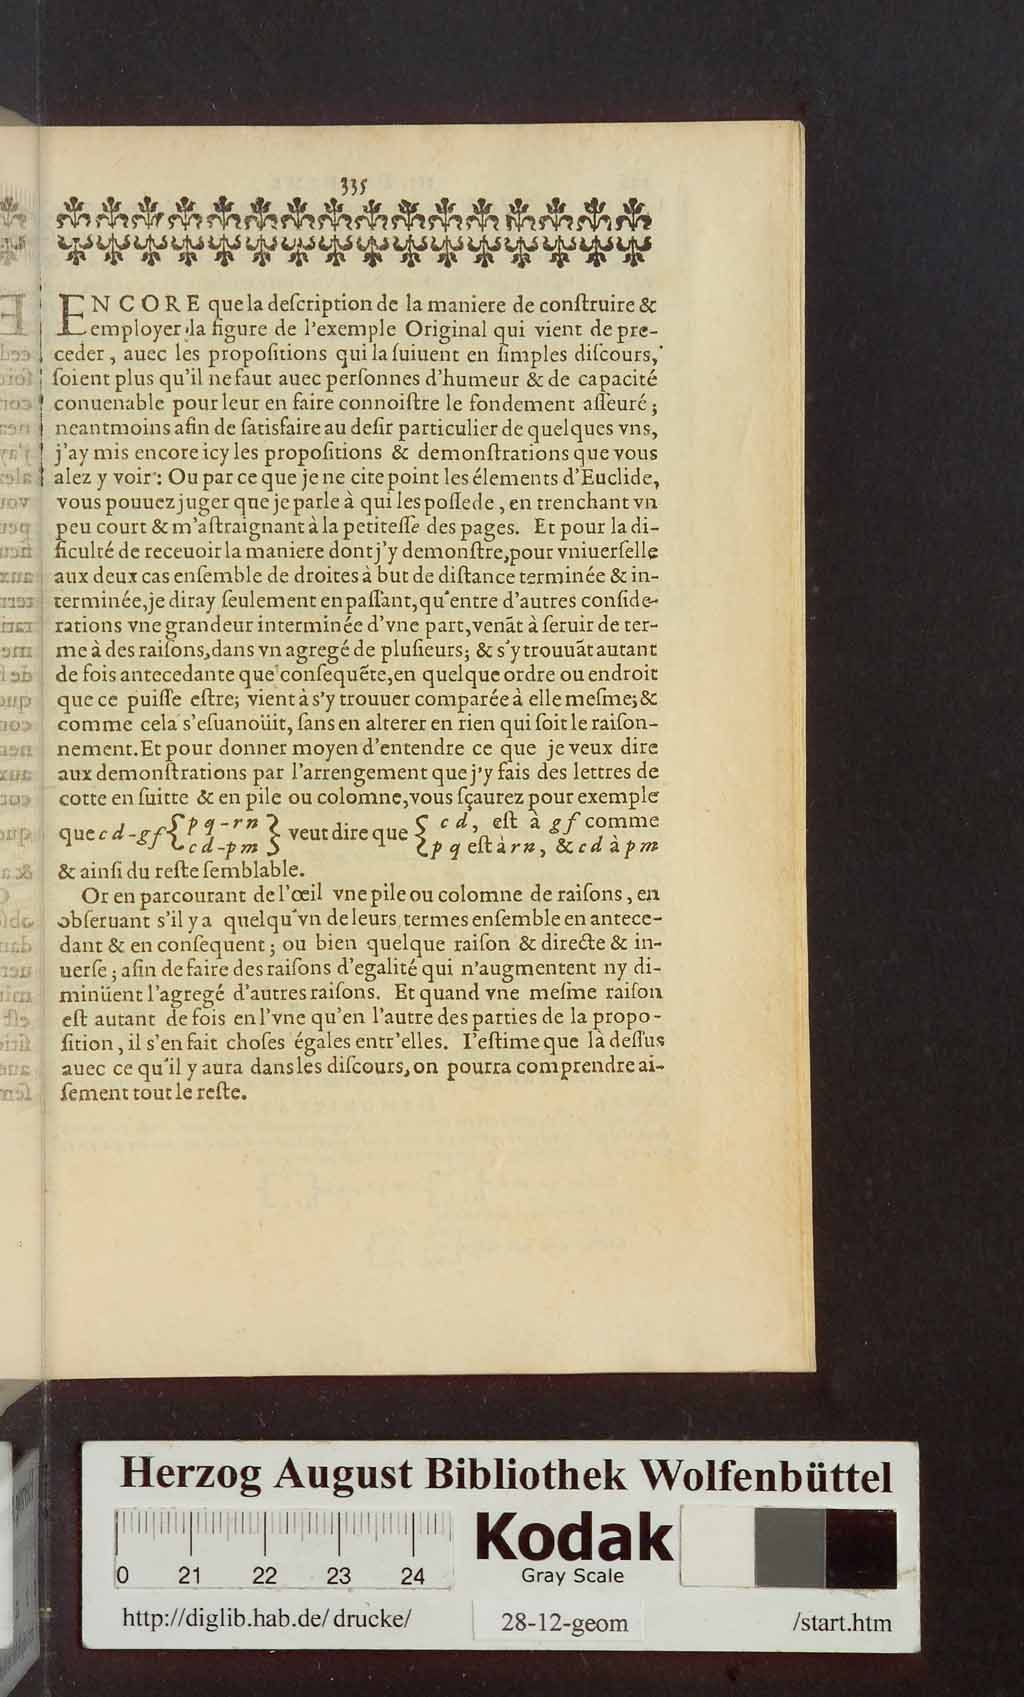 335
ENCORE que la deſcription de la maniere de conſtruire &
employer la figure de l'exemple Original qui vient de pre-
ceder, auec les propoſitions qui la ſuiuent en ſimples diſcours,
ſoient plus qu'il ne faut auec perſonnes d'humeur & de capacité
conuenable pour leur en faire connoiſtre le fondement aſſeuré;
neantmoins afin de ſatisfaire au deſir particulier de quelques vns,
j'ay mis encore icy les propoſitions & demonſtrations que vous
alez y voir: Ou par ce que je ne cite point les élements d'Euclide,
vous pouuez juger que je parle à qui les poſſede, en trenchant vn
peu court & m'aſtraignant à la petiteſſe des pages. Et pour la di-
ficulté de receuoir la maniere dont j'y demonſtre, pour vniuerſelle
aux deux cas enſemble de droites à but de diſtance terminée & in-
terminée, je diray ſeulement en paſſant, qu'entre d'autres conſide-
rations vne grandeur interminée d'vne part, venãt à ſeruir de ter-
me à des raiſons, dans vn agregé de pluſieurs; & s'y trouuãt autant
de fois antecedante que conſequẽte, en quelque ordre ou endroit
que ce puiſſe eſtre; vient à s'y trouuer comparée à elle meſme; &
comme cela s'eſuanoüit, ſans en alterer en rien qui ſoit le raiſon-
nement. Et pour donner moyen d'entendre ce que je veux dire
aux demonſtrations par l'arrengement que j'y fais des lettres de
cotte en ſuitte & en pile ou colomne, vous ſçaurez pour exemple
que cd-gf { pq-rn } veut dire que { cd, eſt à gf comme
cd-pm pq eſt à rn, & cd à pm
& ainſi du reſte ſemblable.
Or en parcourant de l'œil vne pile ou colomne de raiſons, en
obſeruant s'il y a quelqu'vn de leurs termes enſemble en antece-
dant & en conſequent; ou bien quelque raiſon & directe & in-
uerſe; afin de faire des raiſons d'egalité qui n'augmentent ny di-
minüent l'agregé d'autres raiſons. Et quand vne meſme raiſon
eſt autant de fois en l'vne qu'en l'autre des parties de la propo-
ſition, il s'en fait choſes égales entr'elles. I'eſtime que là deſſus
auec ce qu'il y aura dans les diſcours, on pourra comprendre ai-
ſement tout le reſte.
Herzog August Bibliothek Wolfenbüttel
Kodak
Gray Scale
0 21 22 23 24
http://diglib.hab.de/drucke/ 28-12-geom /start.htm